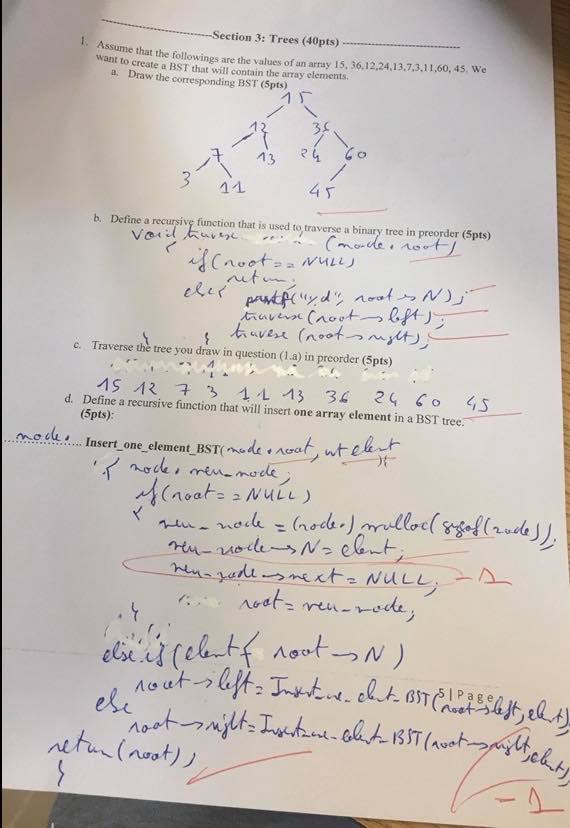 Section 3: Trees (40pts)
1. Assume that the followings are the values of an array 15, 36,12,24,13,7,3,11,60, 45. We
want to create a BST that will contain the array elements.
a. Draw the corresponding BST (5pts)
15
12 36
7 13 24 60
3 11 45
b. Define a recursive function that is used to traverse a binary tree in preorder (5pts)
void traverse (node * root)
{ if (root == NULL)
return;
else { printf("%d", root -> N);
traverse (root -> left);
travese (root -> right);
} }
c. Traverse the tree you draw in question (1.a) in preorder (5pts)
15 12 7 3 11 13 36 24 60 45
d. Define a recursive function that will insert one array element in a BST tree.
(5pts):
node * Insert_one_element_BST(node * root, int elent
){
{ node * new_node;
if (root == NULL)
{
new_node = (node *) malloc(sizeof(node));
new_node -> N = elent;
new_node -> next = NULL; -1
root = new_node;
}
else if (elent < root -> N)
5 | Page
root -> left = Insert_one_elent_BST(root -> left, elent);
else
root -> right = Insert_one_elent_BST(root -> right, elent);
return (root);
}
-1